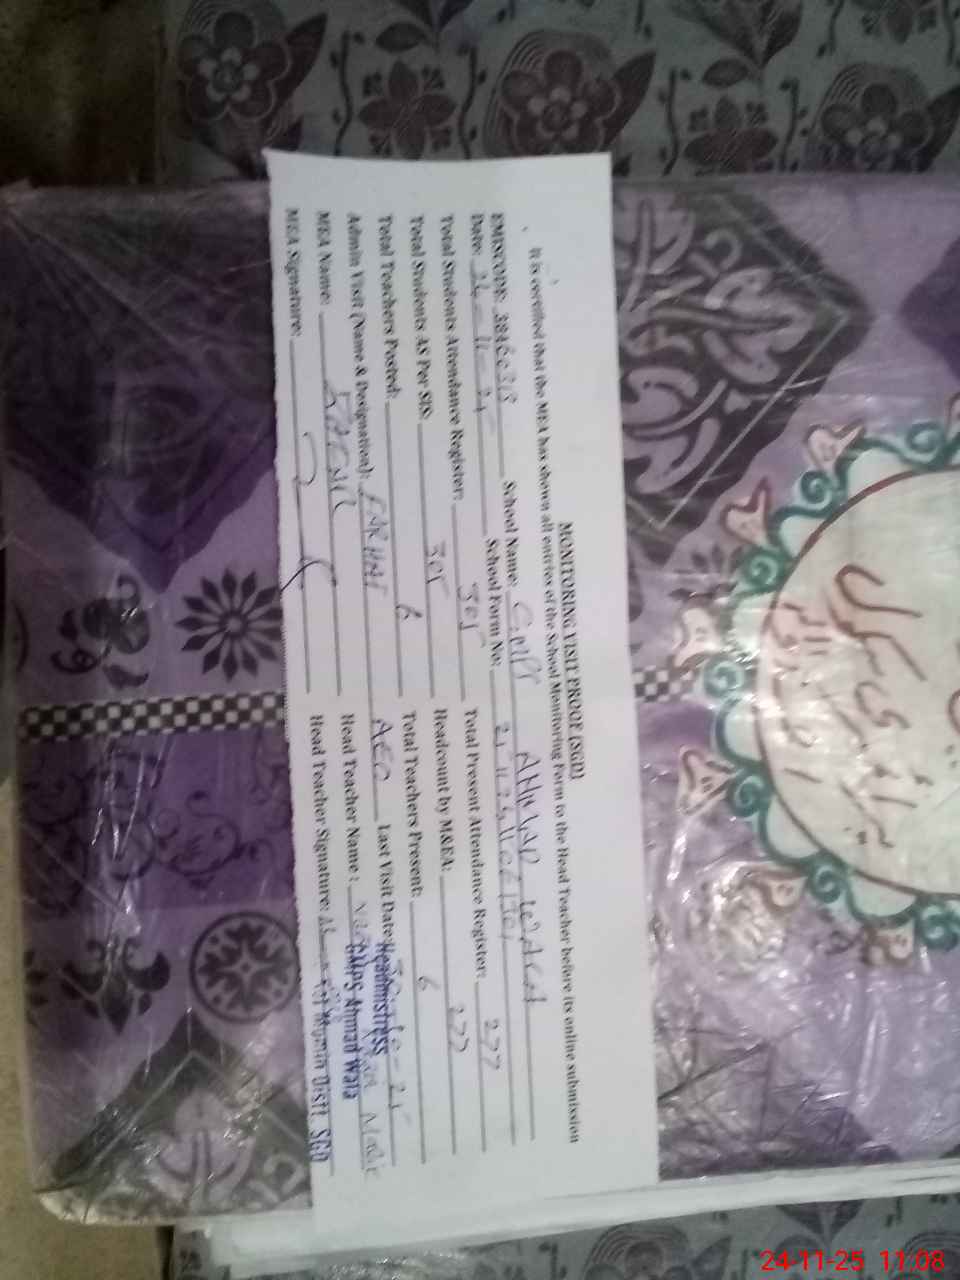 MONITORING VISIT PROOF (SGD)
It is certified that the MEA has shown all entries of the School Monitoring Form to the Head Teacher before its online submission
EMISCODE: School Name: GMPS AHMAD WALA
Date: 24-11-25 School Form No:
Total Students Attendance Register: 305 Total Present Attendance Register: 277
Total Students AS Per SIS: 305 Headcount by M&EA: 277
Total Teachers Posted: 6 Total Teachers Present: 6
Admin Visit (Name & Designation): FARHAT AEO Last Visit Date:
MEA Name: Head Teacher Name :
MEA Signature: Head Teacher Signature:
Headmistress
GMPS Ahmad Wala
Kot Momin Distt SGD
24-11-25 11:08